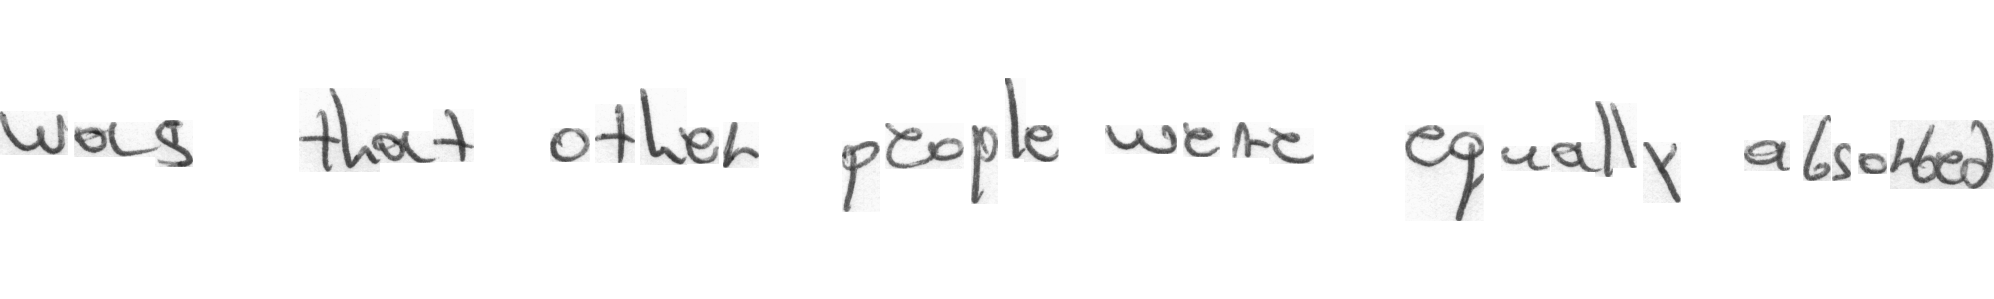 was that other people were equally absorbed